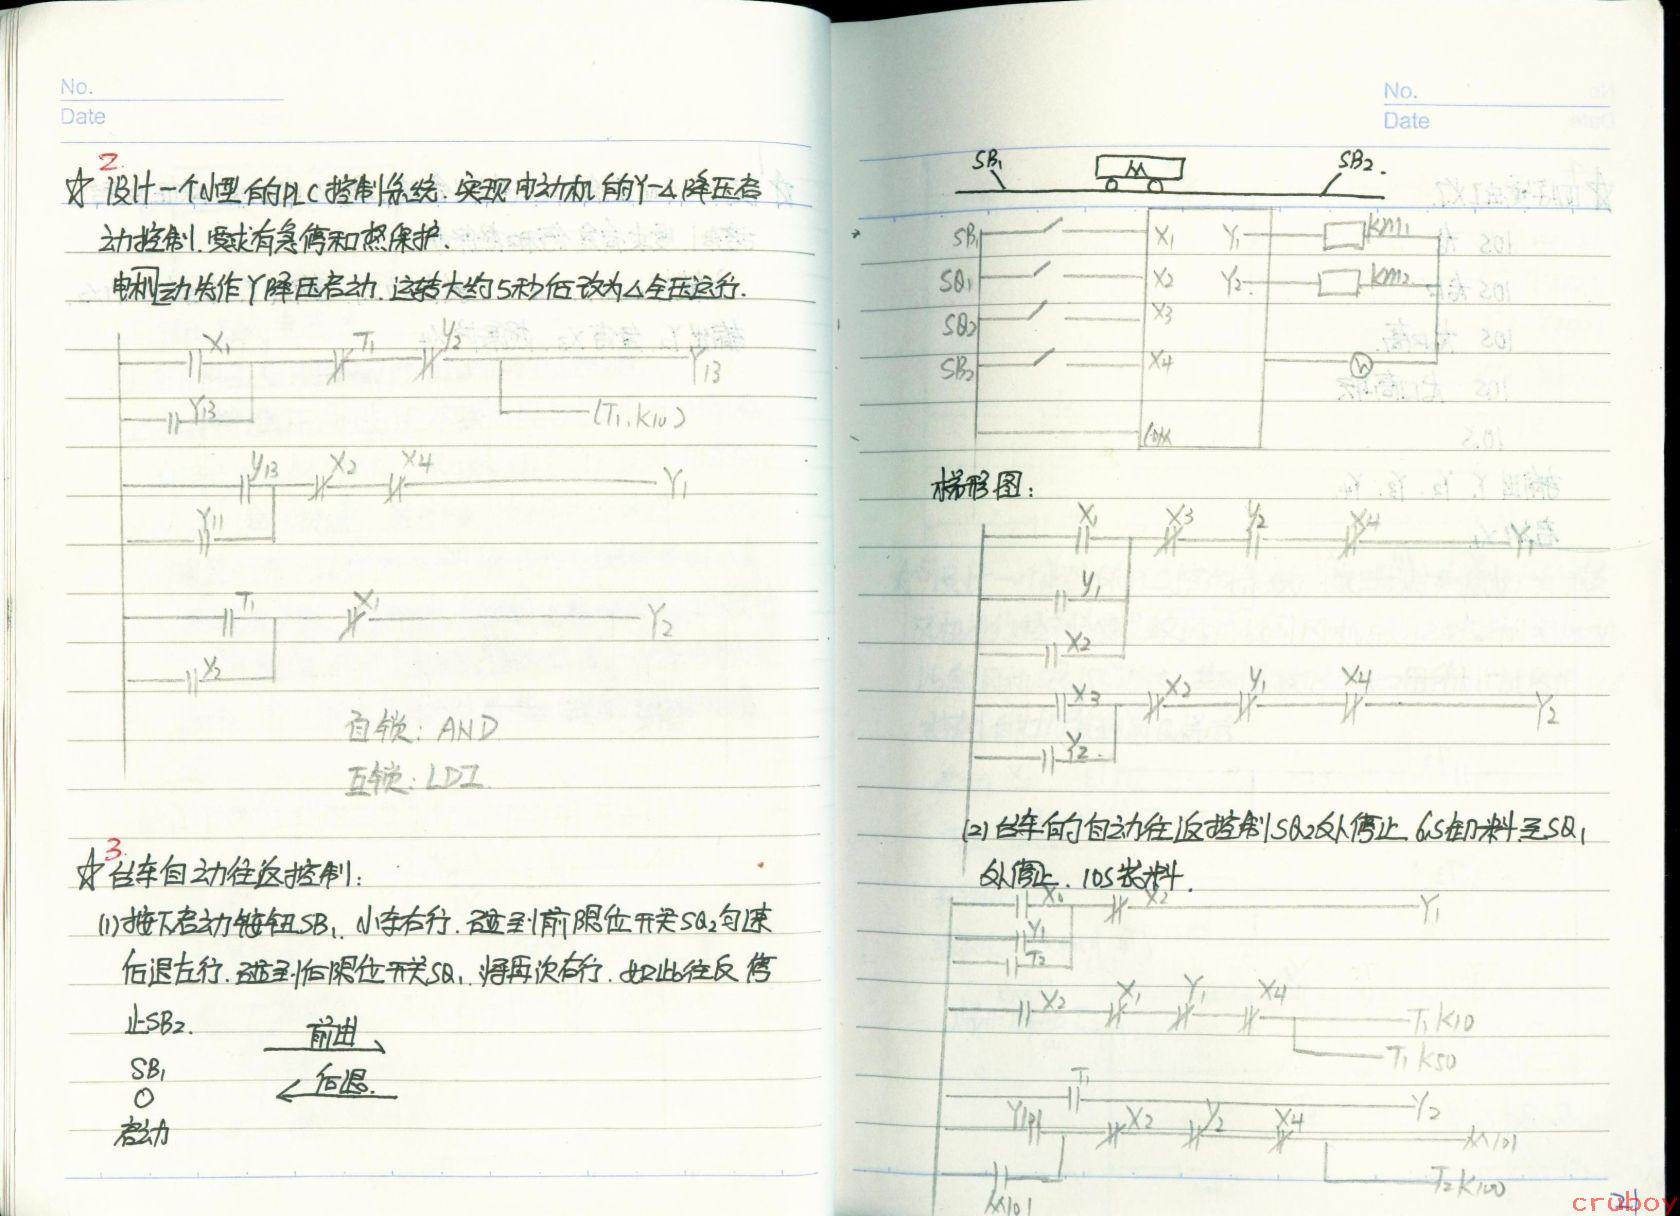 No.
Date
2.
☆ 设计一个小型的PLC控制系统.实现电动机的Y-△降压启
动控制.要求有急停和热保护.
电机动先作Y降压启动.运转大约5秒后改为△全压运行.
X1 T1 Y2 Y13
Y13 (T1,K10)
Y13 X2 X4 Y1
Y11
T1 X1 Y2
X2
自锁: AND
互锁: LDI
3.
☆ 台车自动往返控制:
(1)按下启动按钮SB1.小车右行.碰到前限位开关SQ2匀速
后退左行.碰到后限位开关SQ1.将再次右行.如此往反 停
止SB2.
前进
SB1
后退.
启动
No.
Date
SB1 M SB2.
SB1 X1 Y1 KM1
SQ1 X2 Y2 KM2
SQ2 X3
SB2 X4
COM
梯形图:
X1 X3 Y2 X4 Y1
Y1
X2
X3 X2 Y1 X4 Y2
Y2
(2)台车的自动往返控制SQ2处停止 6S卸料至SQ1
处停止. 10S装料.
X2 Y1
Y1
T2
X2 X1 Y1 X4 T1 K10
T1 K50
T1 Y2
X2 Y2 X4 M101
M101 T2 K100
21
cruboy